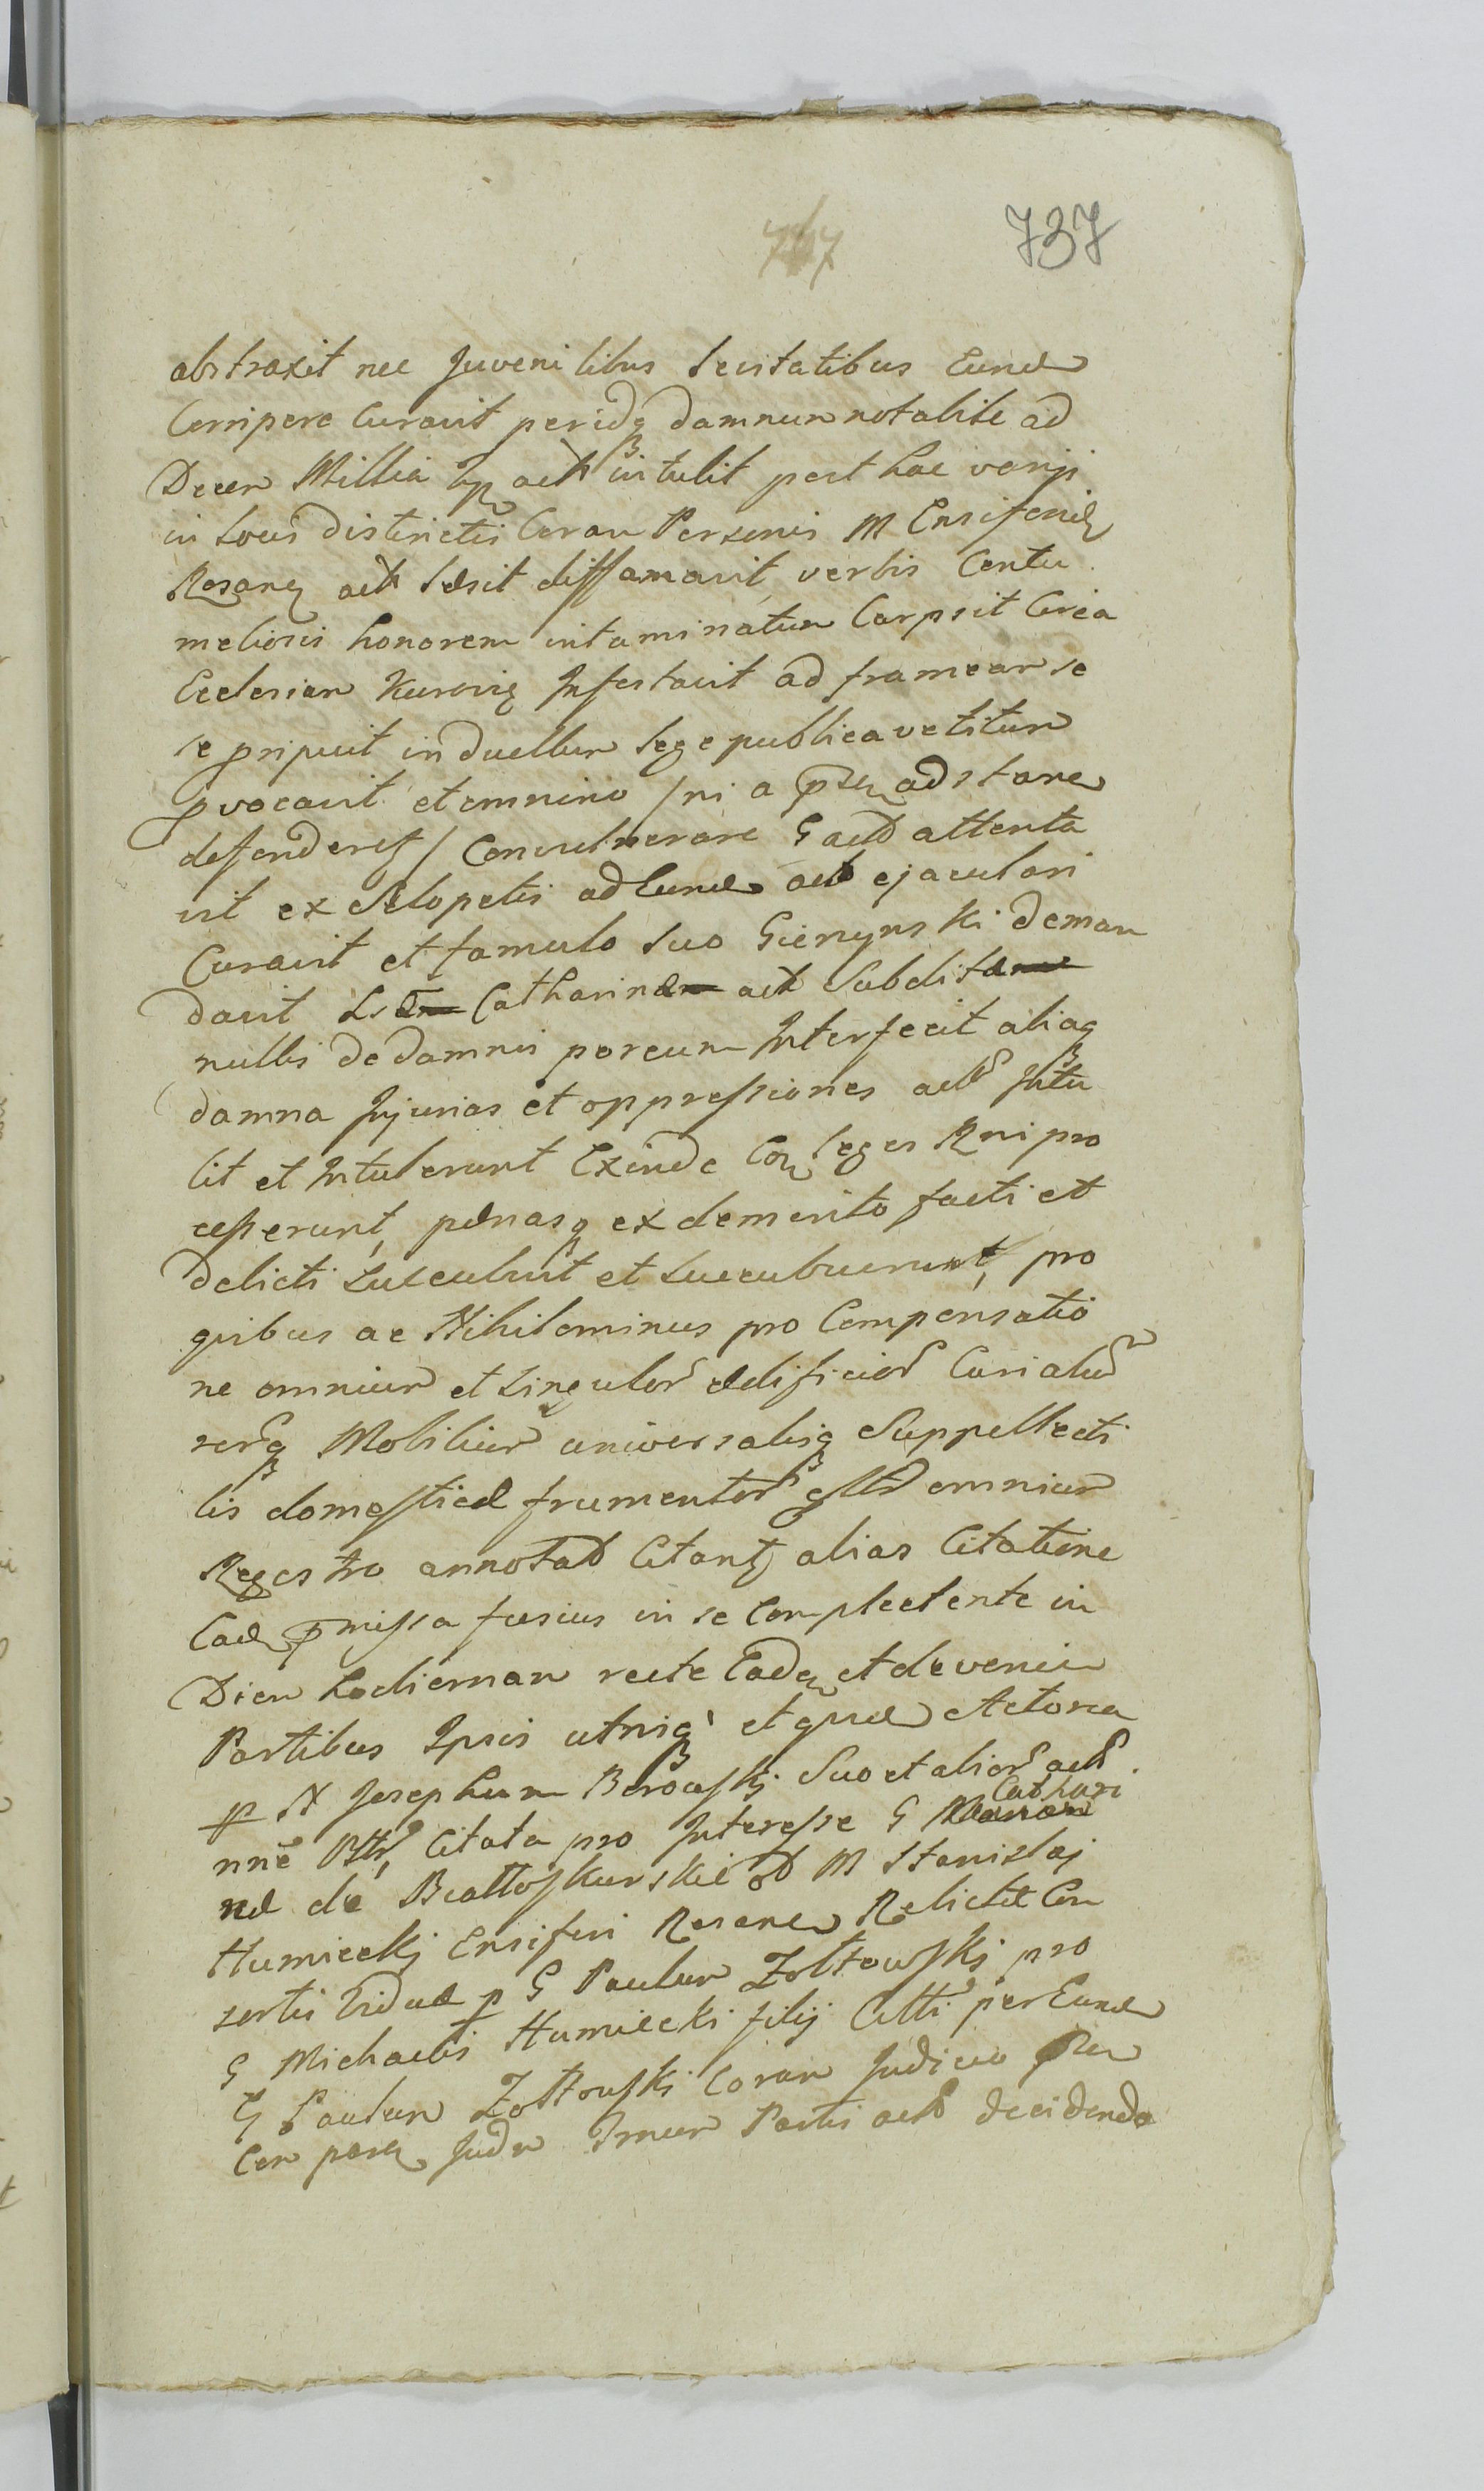 737
abstraxit nec Juvenilibus Levitatibus Eund
Corripere Curavit peridq damnum notabile ad
Decem Millia act intulit post hac varijs
in Locis districtis Coram Personis M Ensiferid
Rosan act Læsit diffamavit verbis Contu
meliosis honorem intaminatum Carpsit Circa
Ecclesiam Infestavit ad frameam se
se pripuit in duellum Lege publica vetitum
pvocavit et omnino / ni a adstan
defenderet / Convulnerare G act attenta
vit ex Sclopetis ad Eund act ejaculari
Curavit et famulo suo Gienynski deman
davit Catharinæ act Subditæ
nullis de damnis porcum Interfecit aliaq
damna Injurias et oppressiones act Intu
lit et Intulerunt Exinde Leges Rni pro
cesserunt, pænasq ex demerito facti et
delicti Succubuit et Succubuerunt, pro
quibus ac Nihilominus pro Compensatio
ne omnium et Singulor ædificior Curialiu
rerq Mobilium universalisq Suppellecti
lis domesticæ frumentor omnium
Regestro annotat Citant alias Citatione
Ead pmissa fusius in se Complectente in
Diem hodiernam recte Caden et deveni
Partibus Ipsis utrisq et Actorea
p N Josephum Borowskj Suo et alior act
nne Citata pro Interesse G Cathari
næ de M Stanislaj
Humieckj Ensiferi Rosane Relictæ Con
sortis Viduæ p G Paulum Zołtowskj pro
G Michaelis Humiecki filij Citti per Eund
G Paulum Zołtowskj Coram Judicio
Com paren Jud Partis act decidenda